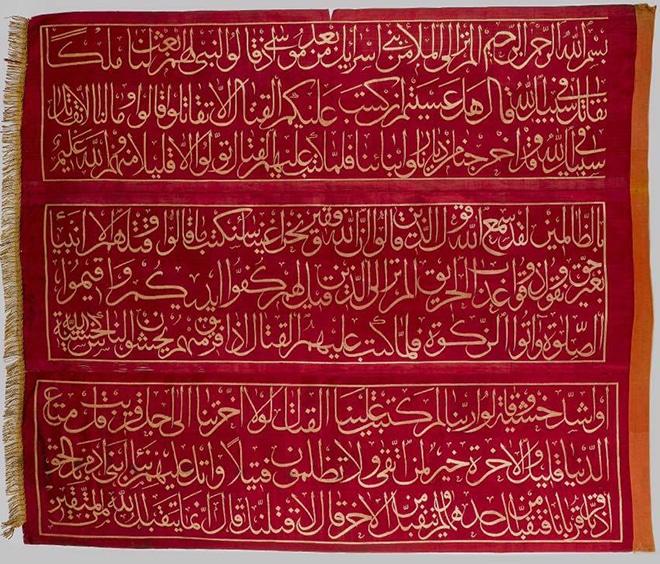 بسم الله الرحمن الرحيم الم تر الى الملا من بنى اسريل من بعد موسى اذ قالوا لنبى لهم ابعث لنا ملكا
نقاتل فى سبيل الله قال هل عسيتم ان كتب عليكم القتال الا تقاتلوا قالوا وما لنا الا نقاتل
فى سبيل الله وقد اخرجنا من ديارنا وابنائنا فلما كتب عليهم القتال تولوا الا قليلا منهم والله عليم
بالظالمين لقد سمع الله قول الذين قالوا ان الله فقير ونحن اغنيا سنكتب ما قالوا وقتلهم الانبيا
بغير حق ونقول ذوقوا عذاب الحريق الم تر الى الذين قيل لهم كفوا ايديكم واقيموا
الصلوة واتوا الزكوة فلما كتب عليهم القتال اذا فريق منهم يخشون الناس كخشية الله
او اشد خشية وقالوا ربنا لم كتبت علينا القتال لولا اخرتنا الى اجل قريب قل متاع
الدنيا قليل والاخرة خير لمن اتقى ولا تظلمون فتيلا واتل عليهم نبا ابنى ادم بالحق
اذ قربا قربانا فتقبل من احدهما ولم يتقبل من الاخر قال لاقتلنك قال انما يتقبل الله من المتقين